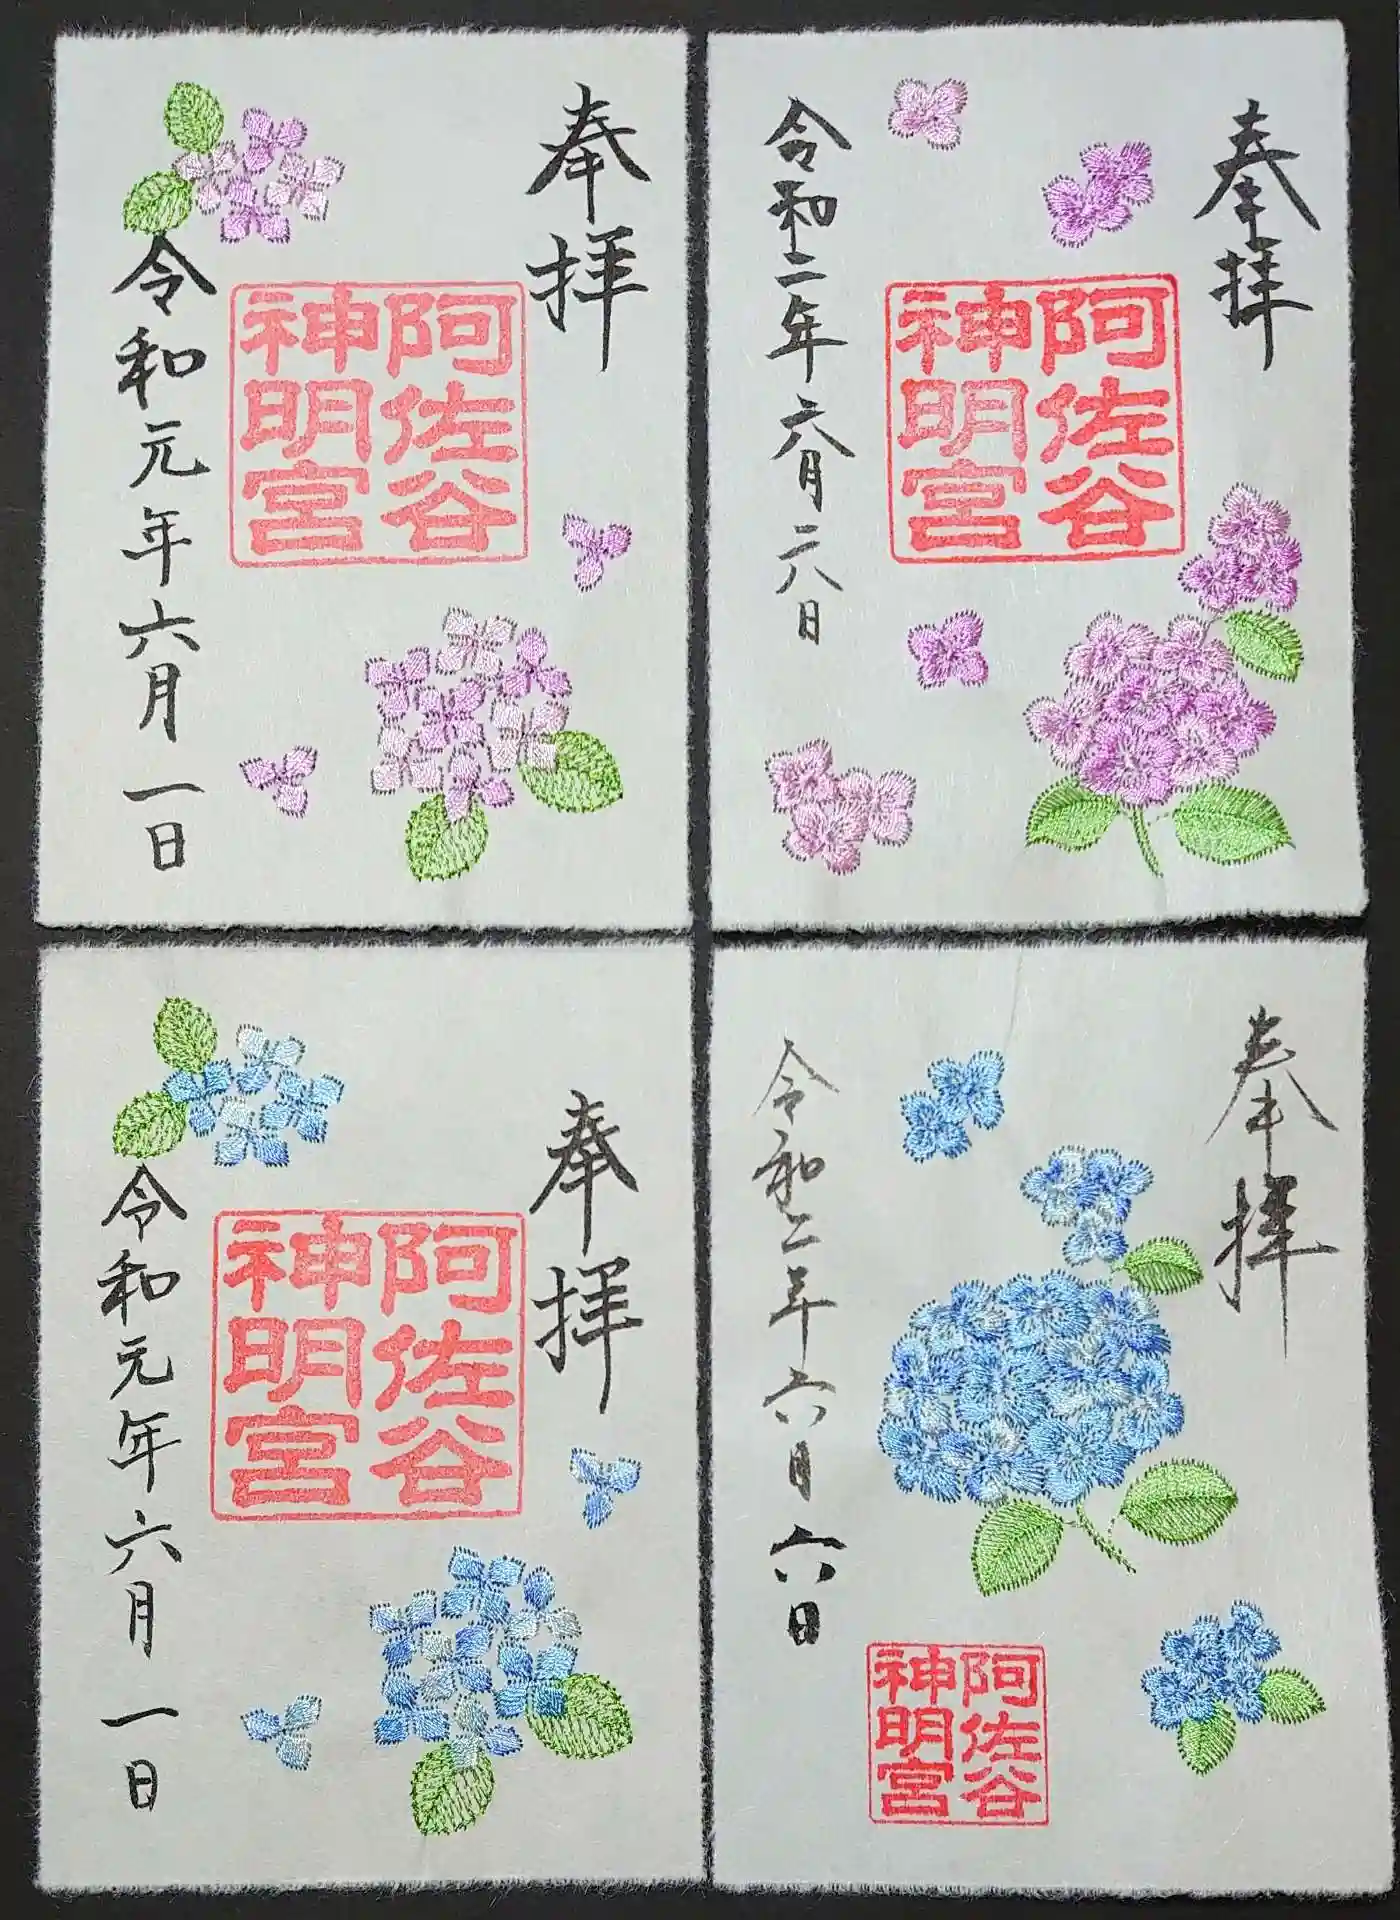 奉拝
阿佐谷
神明宮
令和元年六月一日
奉拝
阿佐谷
神明宮
令和二年六月二八日
奉拝
阿佐谷
神明宮
令和元年六月一日
奉拝
令和二年六月六日
阿佐谷
神明宮